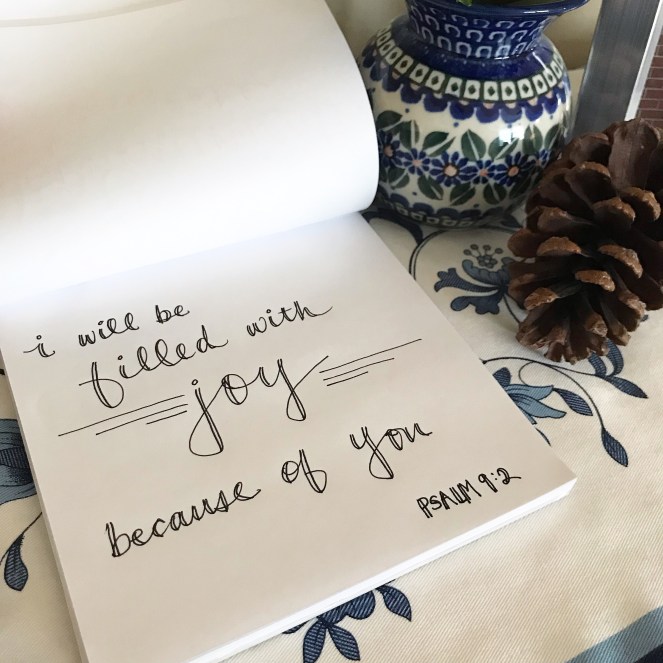 i will be
filled with
joy
because of you
PSALM 9:2